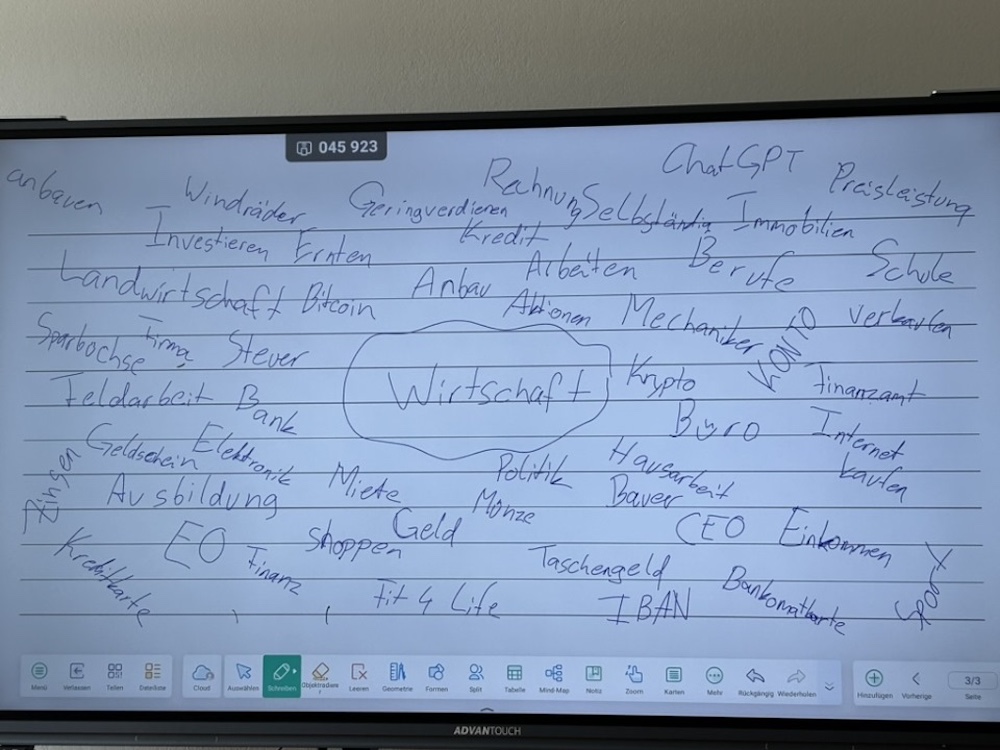 045 923
anbauen Windräder Geringverdieren Rechnung Selbständig ChatGPT Immobilien Preisleistung
Investieren Ernten Kredit Arbeiten Berufe Schule
Landwirtschaft Bitcoin Anbau Aktionen Mechaniker KONTO verkaufen
Sparbochse Firma Steuer Krypto Finanzamt
Wirtschaft
Feldarbeit Bank Büro Internet
Geldschein Elektronik Politik Hausarbeit kaufen
Ausbildung Miete Münze Bauer
EO shoppen Geld CEO Einkommen
Kreditkarte Finanz Taschengeld Bankomatkarte Sport
Fit 4 Life IBAN
Menü Verlassen Teilen Dateiliste Cloud Auswählen Schreiben Leeren Geometrie Formen Split Tabelle Mind Map Notiz Zoom Karten Mehr Rückgängig Wiederholen Hinzufügen Vorherige 3/3
Seite
ADVANTOUCH